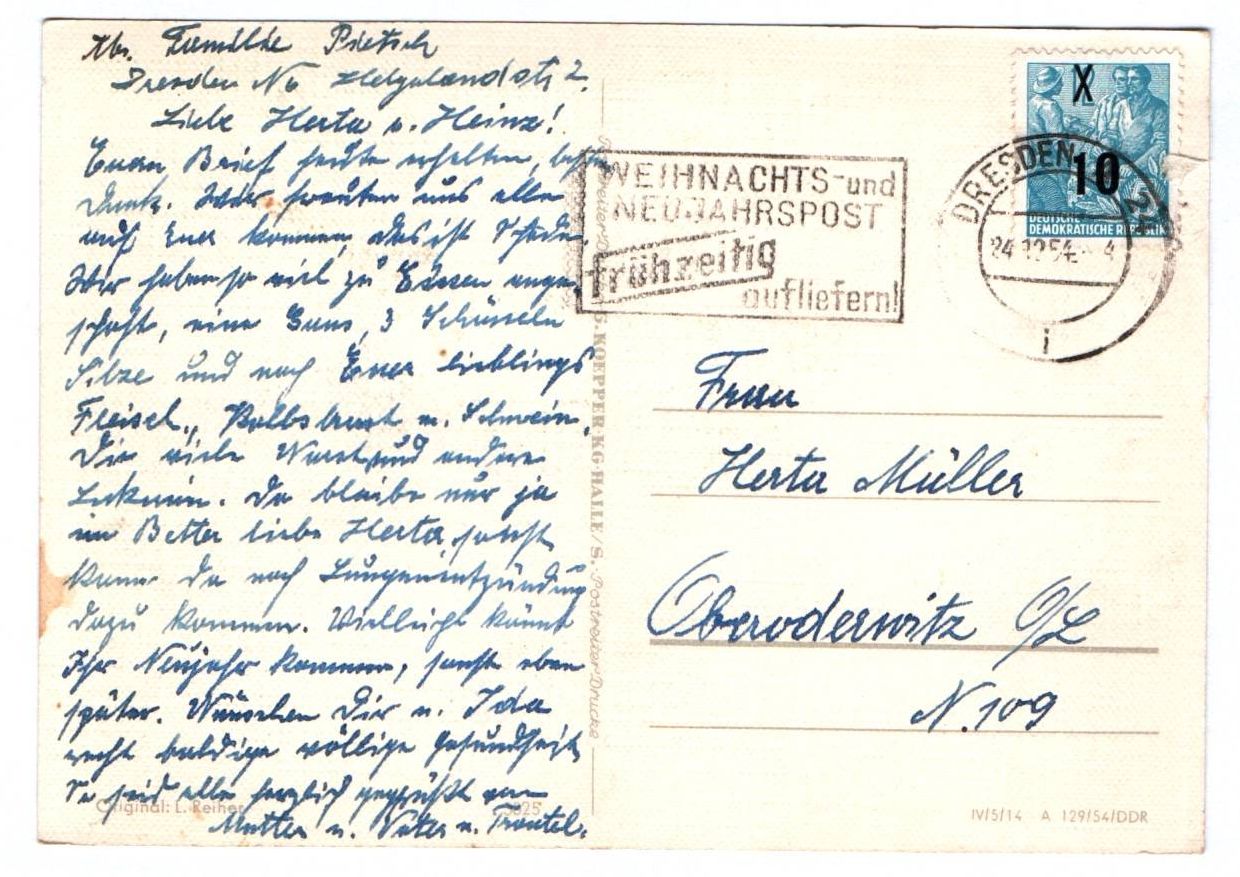 Abs. Familie Pietsch
Dresden N 6 Helgolandstr 2.
Liebe Herta u. Heinz!
Euern Brief heute erhalten, besten
Dank. Wir freuten uns alle
auf Euer kommen, das ist Schade.
Wir haben so viel zu Essen ange
schaft, eine Gans, 3 Schüsseln
Silze und noch Euer lieblings
Fleisch, Kalbsbraten u. Schwein,
die viele Wurst und andere
. Du bleibe nur ja
im Bette liebe Herta, sonst
kann da noch Lungenentzündung
dazu kommen. Vielleicht könnt
Ihr Neujahr kommen, sonst eben
später. Wünschen Dir u. Ida
recht baldige völlige Gesundheit
So seid alle herzlich gegrüßt von
Mutter u. Vater u. Trautel.
Original: L. Reiher
3825
S. KOEPPER·KG·HALLE/S. Postreiter-Drucke
WEIHNACHTS-und
NEUJAHRSPOST
frühzeitig
aufliefern!
DRESDEN
24.12.54
i
X
10
DEUTSCHE
DEMOKRATISCHE REPUBLIK
Frau
Herta Müller
Oberoderwitz O/L
N. 109
IV/5/14 A 129/54/DDR